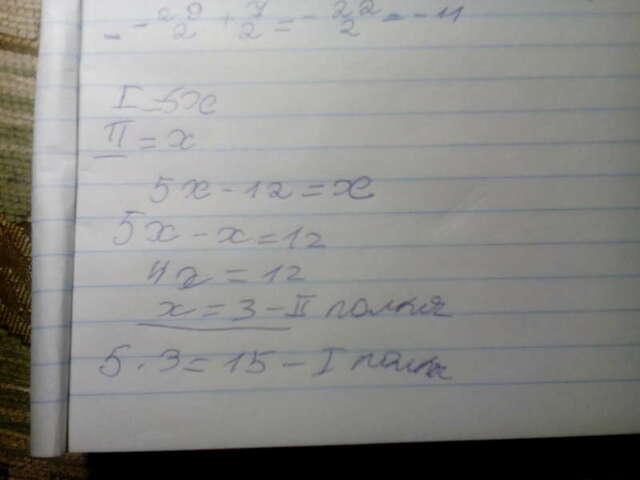 - -29/2 + 7/2 = - 22/2 = -11
I - 5x
II = x
5x - 12 = x
5x - x = 12
4x = 12
x = 3 - II полка
5 · 3 = 15 - I полка